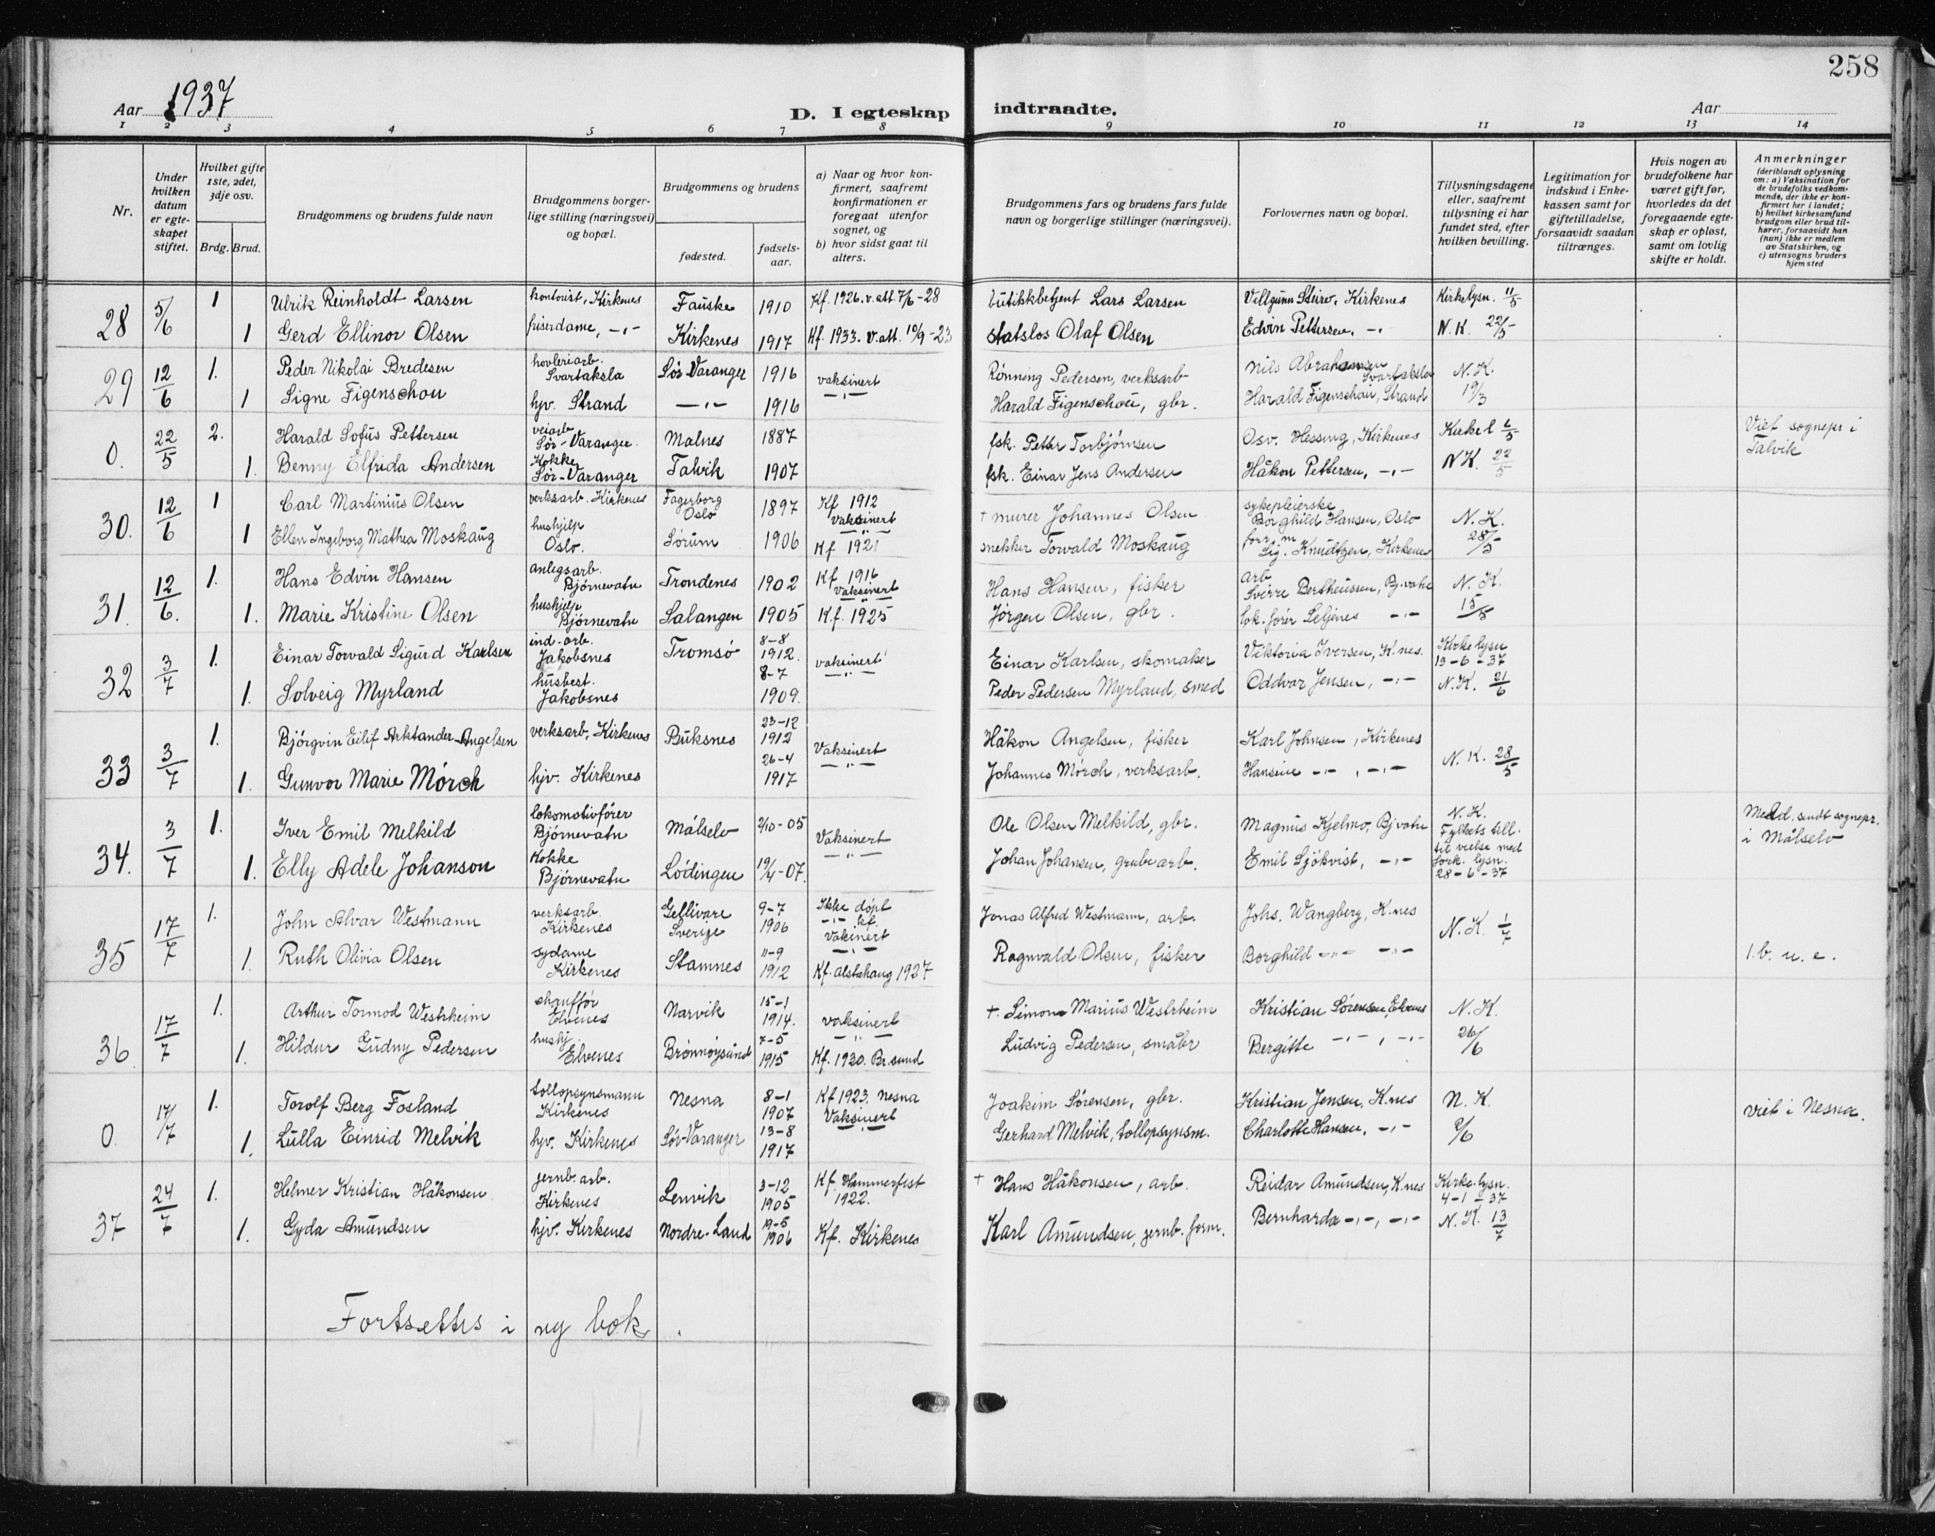 258
Aar 1937
D. I egteskap indtraadte.
Aar
1 2 3 4 5 6 7 8 9 10 11 12 13 14
Nr.
Under hvilken datum er egteskapet stiftet.
Hvilket gifte 1ste, 2det, 3dje osv.
Brdg. Brud.
Brudgommens og brudens fulde navn
Brudgommens borgerlige stilling (næringsvei) og bopæl.
Brudgommens og brudens
fødested. fødselsaar.
a) Naar og hvor konfirmert, saafremt konfirmationen er foregaat utenfor sognet, og
b) hvor sidst gaat til alters.
Brudgommens fars og brudens fars fulde navn og borgerlige stillinger (næringsvei).
Forlovernes navn og bopæl.
Tillysningsdagene eller, saafremt tillysning ei har fundet sted, efter hvilken bevilling.
Legitimation for indskud i Enkekassen samt for giftetilladelse, forsaavidt saadan tiltrænges.
Hvis nogen av brudefolkene har været gift før, hvorledes da det foregaaende egteskap er opløst, samt om lovlig skifte er holdt.
Anmerkninger (deriblandt oplysning om: a) Vaksination for de brudefolks vedkommende, der ikke er konfirmert her i landet; b) hvilket kirkesamfund brudgom eller brud tilhører, forsaavidt han (hun) ikke er medlem av Statskirken, og c) utensogns bruders hjemsted
28 5/6 1 Ulrik Reinholdt Larsen kontorist, Kirkenes Fauske 1910 Kf. 1926. v. att. 7/6-28 butikkbetjent Lars Larsen Kirkenes Kirkelysn. 11/5
1 Gerd Ellinor Olsen friserdame, -"- Kirkenes 1917 Kf. 1933. v. att. 10/9-23 statslos Olaf Olsen Edvin Pettersen, -"- N.K. 22/5
29 12/6 1. Peder Nikolai Bredesen Svartaksla Sør-Varanger 1916 vaksinert Rønning Pedersen, verksarb. Nils Abrahamsen Svartaksla N.K.
1 Signe Figenschou hjv. Strand -"- 1916 -"- Harald Figenschou, gbr. Harald Figenschou, Strand 19/3
0. 22/5 2. Harald Sofus Pettersen veiarb. Sør-Varanger. Malnes 1887 fsk. Petter Torbjørnsen Osv. Hessing, Kirkenes Viet sognepr. i Talvik
1. Benny Elfrida Andersen Kokke Sør-Varanger Talvik 1907 fsk. Einar Jens Andersen Håkon Pettersen, -"- N.K. 22/5
30. 12/6 1 Carl Martinius Olsen verksarb. Kirkenes Fagerborg Oslo 1897 Kf 1912 vaksinert + murer Johannes Olsen sykepleierske Borghild Hansen, Oslo N.K.
1 Ellen Ingeborg Mathea Moskaug hushjelp Oslo. Sørum 1906 -"- Kf 1921 snekker Torvald Moskaug Sig. Knudtzen, Kirkenes 28/5
31. 12/6. 1. Hans Edvin Hansen anlegsarb. Bjørnevatn Trondenes 1902 Kf. 1916 Vaksinert Hans Hansen, fisker arb. Sverre Bertheussen, Bj.vatn N.K.
1. Marie Kristine Olsen hushjelp Bjørnevatn Salangen 1905 -"- Kf. 1925 Jørgen Olsen, gbr. lok.fører -"- 15/5
32 3/7 1. Einar Torvald Sigurd Karlsen ind.arb. Jakobsnes Tromsø 8-8 1912. vaksinert Einar Karlsen, skomaker Viktoria Iversen, K.nes. Kirkelysn 13-6-37
1. Solveig Myrland husbest. Jakobsnes 8-7 1909. -"- Peder Pedersen Myrland, smed Oddvar Jensen, -"- N.K. 21/6
33 3/7 1. Bjørgvin Eilif Arktander Angelsen verksarb. Kirkenes Buksnes 23-12 1912 Vaksinert Håkon Angelsen, fisker Karl Johnsen, Kirkenes N.K. 28/5
1. Gunvor Marie Mørch hjv. Kirkenes 26-4 1917 -"- Johannes Mørch, verksarb. Hansine -"-, -"-
34. 3/7 1. Iver Emil Melkild lokomotivfører Bjørnevatn Målselv 2/10-05 Vaksinert Ole Olsen Melkild, gbr. Magnus Kjelmo, Bj.vatn N.K. Fylkets till. til vielse med fork. lysn. 28-6-37 Medd. sendt sognepr. i Målselv
1. Elly Adele Johanson Kokke Bjørnevatn Lødingen 19/4-07. -"- Johan Johansen, grubearb. Emil Sjökvist, -"-
35 17/7 1. John Alvar Westmann verksarb. Kirkenes Gellivare Sverige 9-7 1906 Ikke døpt -"- kf. Vaksinert Jonas Alfred Westmann, arb. Johs. Wangberg, K.nes N.K. 1/7
1. Ruth Olivia Olsen sydame Kirkenes Stamnes 11-9 1912 -"- Kf. Alstahaug 1927 Ragnvald Olsen, fisker Borghild -"- -"- 1. b. u. e.
36. 17/7 1. Arthur Tormod Westrheim chauffør Elvenes Narvik 15-1 1914. vaksinert +. Simon Marius Westrheim Kristian Sørensen, Elvenes N.K.
1. Hildur Gudny Pedersen hushj. Elvenes Brønnøysund 7-5 1915 -"- Kf. 1930. Br.sund Ludvig Pedersen, småbr Bergitte -"-, -"- 26/6
0. 17/7 1. Torolf Berg Fosland tollopsynsmann Kirkenes Nesna 8-1 1907 Kf 1923. Nesna Vaksinert Joakim Sørensen, gbr. Kristian Jensen, K.nes N.K. viet i Nesna.
1. Lulla Einrid Melvik hjv. Kirkenes Sør-Varanger 13-8 1917 Gerhard Melvik, tollopsynsm. Charlotte Hansen, -"-
37 24/7 1. Helmer Kristian Håkonsen jernb. arb. Kirkenes Lenvik 3-12 1905 Kf. Hammerfest 1922. + Hans Håkonsen, arb. Reidar Amundsen, K.nes Kirkelysn. 4-1-37
1. Gyda Amundsen hjv. Kirkenes Nordre-Land 19-5 1906 Kf. Kirkenes Karl Amundsen, jernb. form. Bernharda -"-, -"- N.K. 13/7
Fortsettes i ny bok.